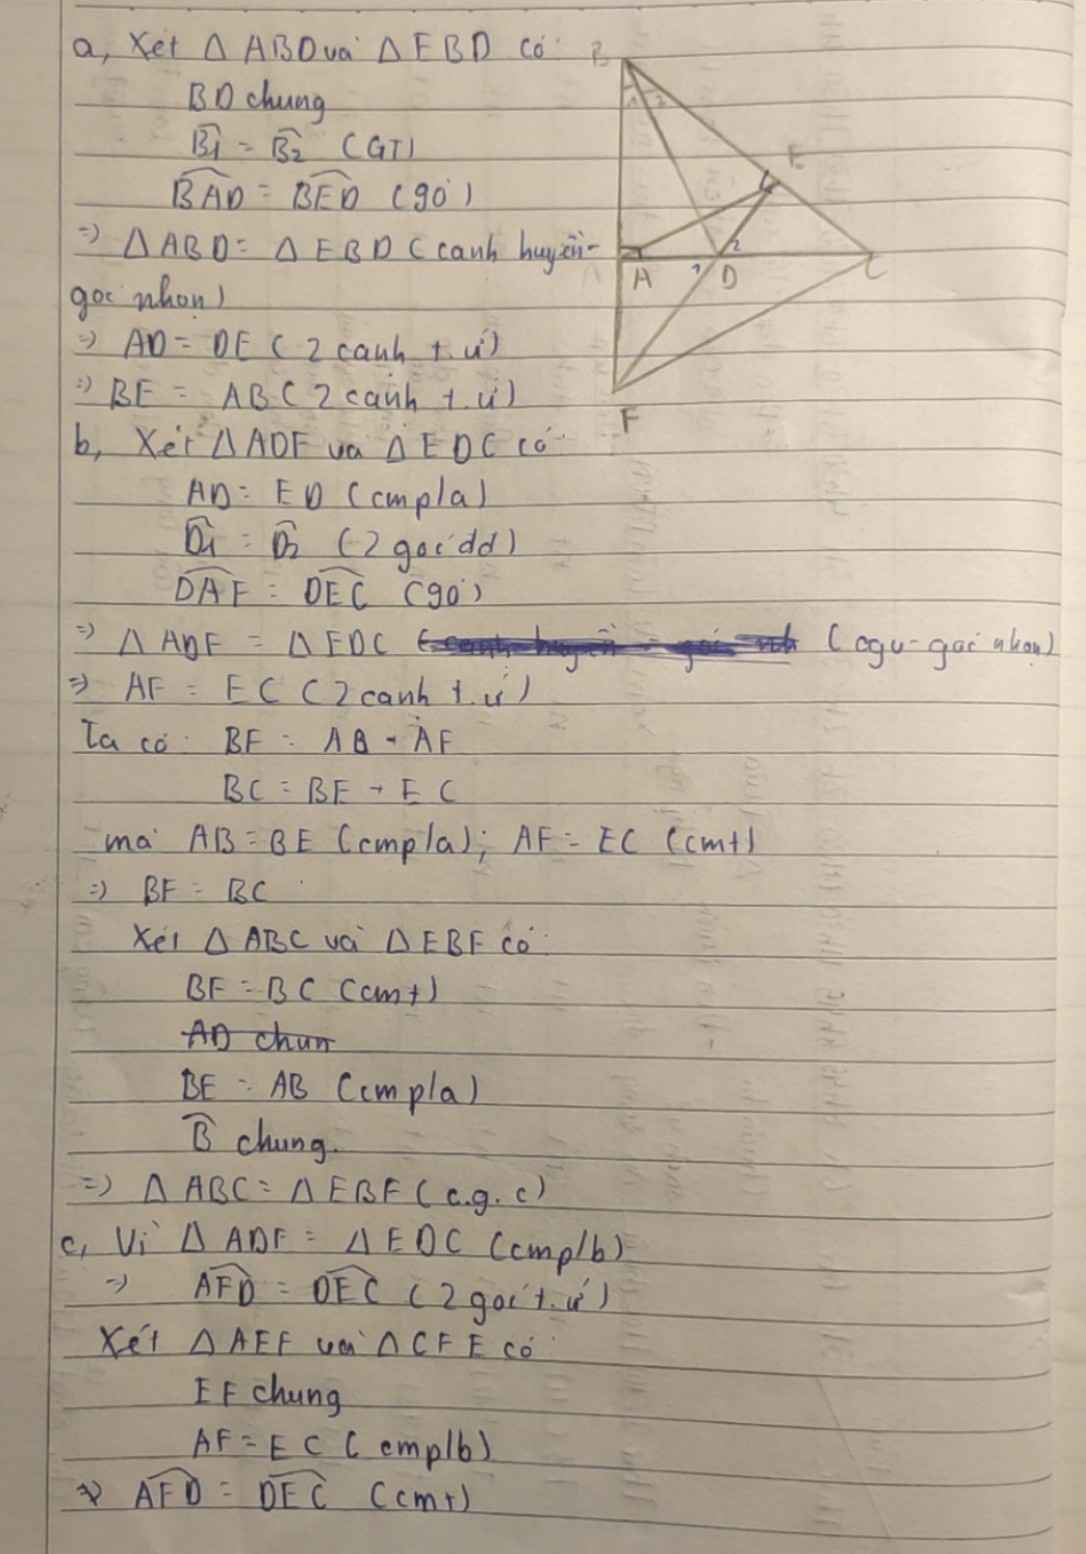 a, Xét Δ ABD và Δ EBD có
BD chung
B1 = B2 (GT)
BAD = BED (90°)
=> Δ ABD = Δ EBD (cạnh huyền-
góc nhọn)
=> AD = DE (2 cạnh t.ứ)
=> BE = AB (2 cạnh t.ứ)
b, Xét Δ ADF và Δ EDC có
AD = ED (cmpla)
D1 = D2 (2 góc đd)
DAF = DEC (90°)
=> Δ ADF = Δ EDC (cgv-góc nhọn)
=> AF = EC (2 cạnh t.ứ)
Ta có: BF = AB + AF
BC = BE + EC
mà AB = BE (cmpla); AF = EC (cmt)
=> BF = BC
Xét Δ ABC và Δ EBF có
BF = BC (cmt)
AD chun
BE = AB (cmpla)
B chung.
=> Δ ABC = Δ EBF (c.g.c)
c, Vì Δ ADF = Δ EDC (cmp/b)
=> AFD = DEC (2 góc t.ứ)
Xét Δ AEF và Δ CFE có
EF chung
AF = EC (cmp/b)
AFD = DEC (cmt)
B
1 2
E
A
1
2
D
C
F